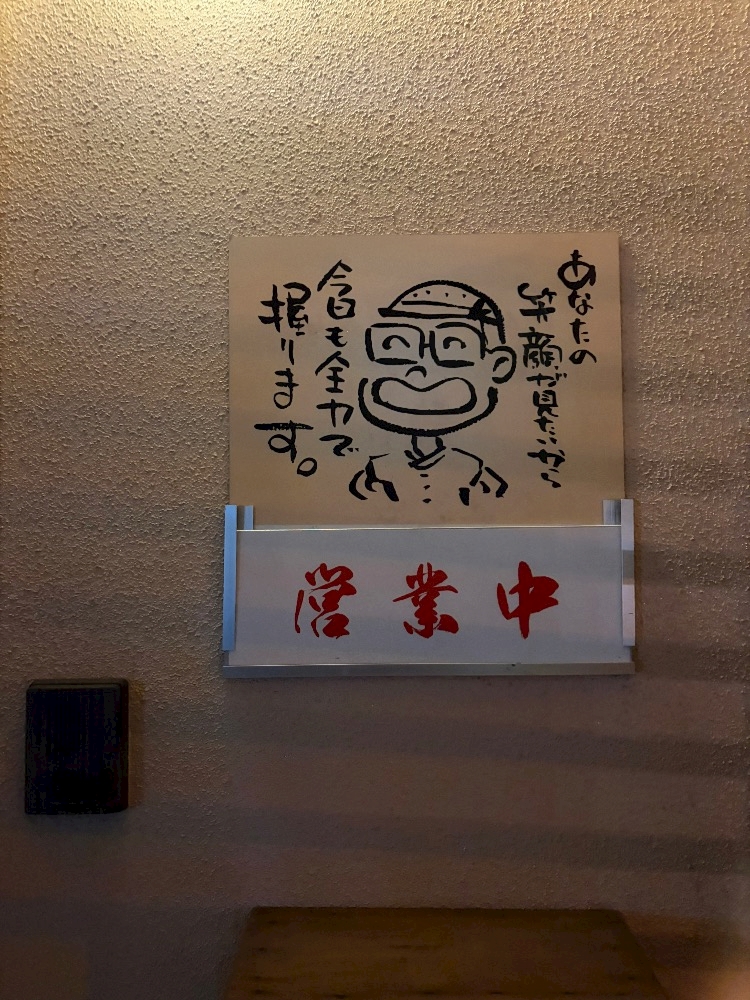 あなたの
笑顔が見たいから
今日も全力で
握ります。
営業中